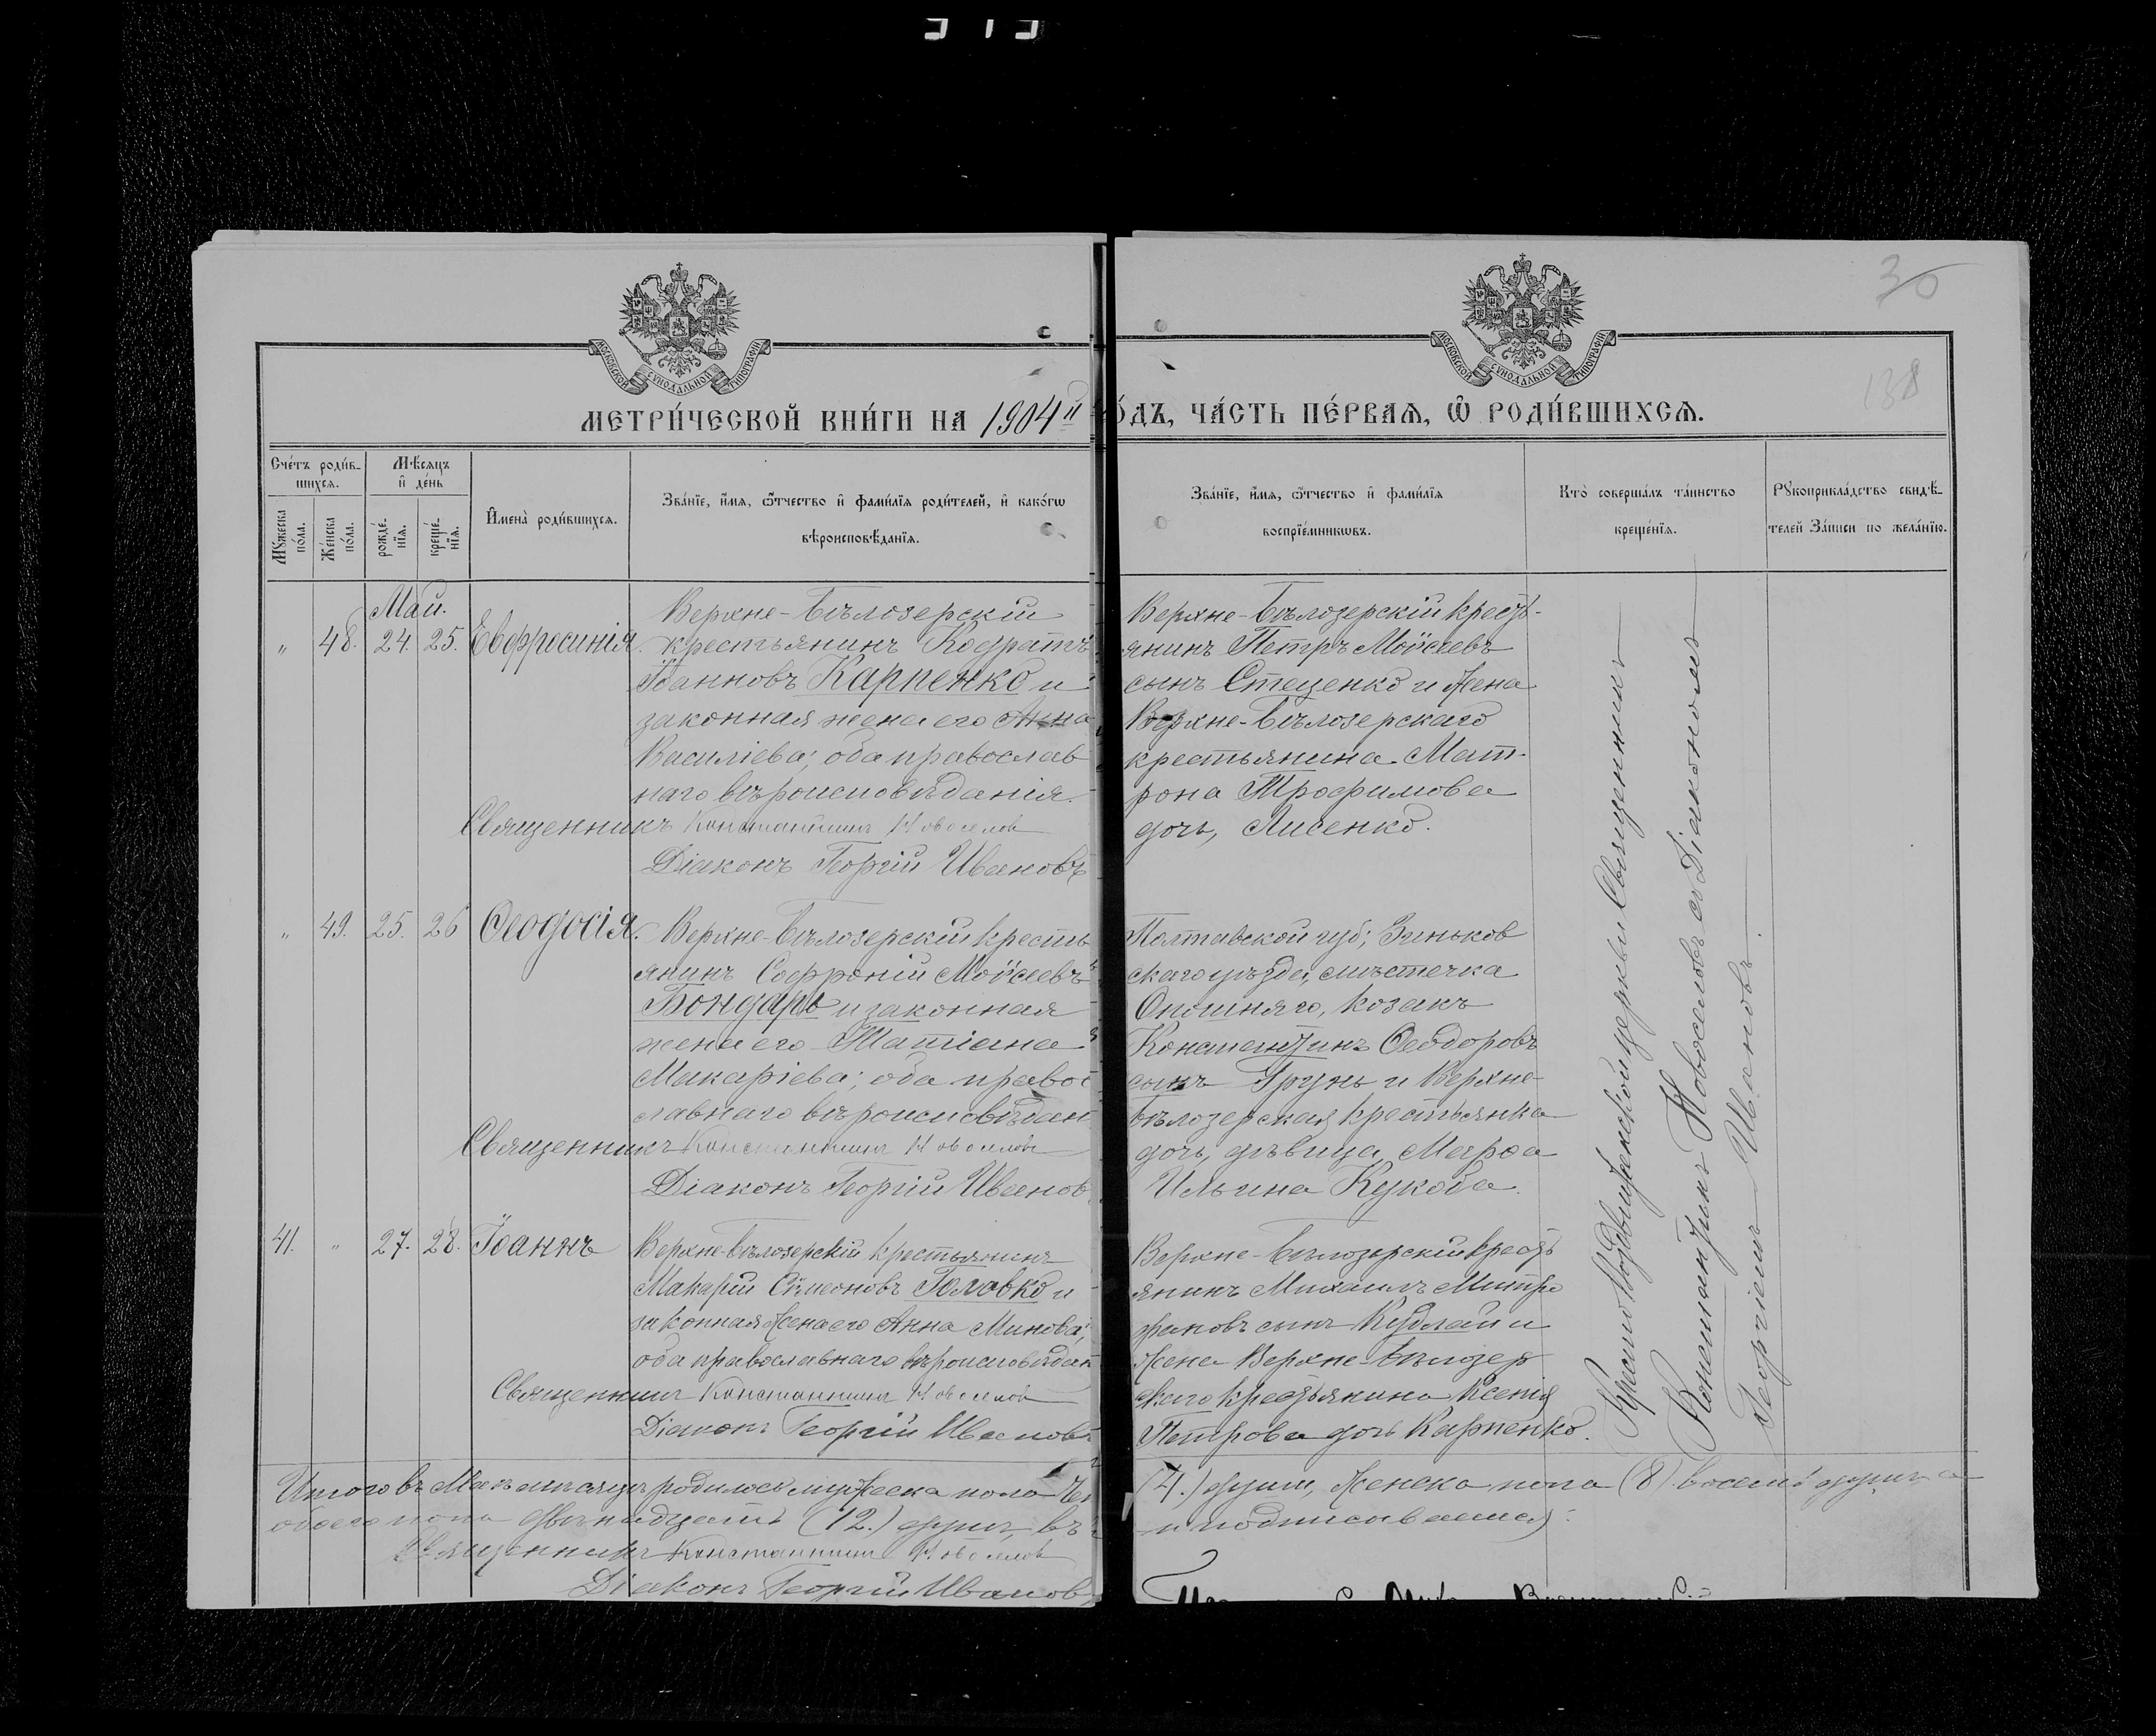 МОСКОВСКОЙ СѴНОДАЛЬНОЙ ТИПОГРАФІИ
МОСКОВСКОЙ СѴНОДАЛЬНОЙ ТИПОГРАФІИ
МЕТРИ́ЧЕСКОЙ КНИ́ГИ НА 1904й
О́ДЪ, ЧА́СТЬ ПЕ́РВАѦ, Ѿ РОДИ́ВШИХСѦ.
138
Сче́тъ роди́в-
шихсѧ.
Мѣ́сѧцъ
и҆ де́нь
Мꙋ́жеска
по́ла.
Же́нска
по́ла.
рожде́-
нїѧ.
креще́-
нїѧ.
И҆мена̀ роди́вшихсѧ.
Зва́нїе, и҆́мѧ, ѻ҆́тчество и҆ фами́лїѧ роди́телей, и҆ како́гѡ
вѣроисповѣ́данїѧ.
Зва́нїе, и҆́мѧ, ѻ҆́тчество и҆ фами́лїѧ
воспрїе́мникѡвъ.
Кто̀ соверша́лъ та́инство
креще́нїѧ.
Рꙋкоприкла́дство свидѣ́-
телей за́писи по жела́нїю.
Май.
" 48. 24. 25. Евфросинія.
Верхне-Бѣлозерскій
крестьянинъ Кодратъ
Іоанновъ Карпенко и
законная жена его Анна
Василіева; оба православ
наго вѣроисповѣданія.
Священникъ Константинъ Новоселов
Діаконъ Георгій Ивановъ
Верхне-Бѣлозерскій кресть-
янинъ Петръ Моѵсеевъ
сынъ Стеценко и жена
Верхне-Бѣлозерскаго
крестьянина Мат-
рона Трофимова
дочь, Лисенко.
" 49. 25. 26 Ѳеодосія.
Верхне-Бѣлозерскій кресть
янинъ Софроній Моѵсеевъ
Бондарь и законная
жена его Татіана
Макаріева; оба правос
лавнаго вѣроисповѣдан
Священникъ Константинъ Новоселов
Діаконъ Георгій Иванов
Полтавской губ; Зиньков
скаго уѣзда, мѣстечка
Опошняго, козакъ
Константинъ Ѳеодоровъ
сынъ Грунь и Верхне-
бѣлозерская крестьянка
дочь, дѣвица Марѳа
Ильина Кукоба.
41. " 27. 28. Іоаннъ
Верхне-Бѣлозерскій крестьянинъ
Макарій Сѵмеоновъ Головко и
законная жена его Анна Минова;
оба православнаго вѣроисповѣдан
Священникъ Константинъ Новоселов
Діаконъ Георгій Ивановъ
Верхне-Бѣлозерскій кресть
янинъ Михаилъ Митро
фановъ сынъ Кудлай и
жена Верхне-Бѣлозер
скаго крестьянина Ксенія
Петрова дочь Карпенко.
Кресто-Воздвиженской церкви Священникъ
Константинъ Новоселовъ съ Діакономъ
Георгіемъ Ивановъ.
Итого въ Маѣ мѣсяцѣ родилось мужеска пола Чет
(4.) душъ, женска пола (8) восемь душъ а
обоего пола двѣнадцать (12.) душъ, въ
и подписываемся:
Священникъ Константинъ Новоселов
Діаконъ Георгій Иванов